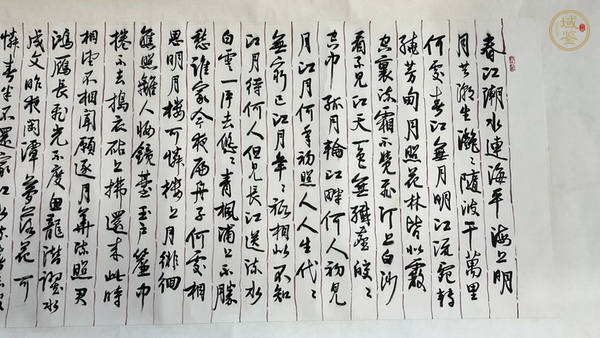 春江潮水連海平海上明
月共潮生灧〻隨波千萬里
何處春江無月明江流宛轉
繞芳甸月照花林皆似霰
空裏流霜不覺飛汀上白沙
看不見江天一色無纖塵皎〻
空中孤月輪江畔何人初見
月江月何年初照人人生代〻
無窮已江月年〻祗相似不知
江月待何人但見長江送流水
白雲一片去悠〻青楓浦上不勝
愁誰家今夜扁舟子何處相
思明月樓可憐樓上月徘徊
應照離人妝鏡臺玉戶簾中
捲不去搗衣砧上拂還來此時
相望不相聞願逐月華流照君
鴻雁長飛光不度魚龍潛躍水
成文昨夜閑潭夢落花可
憐春半不還家江水
域鉴